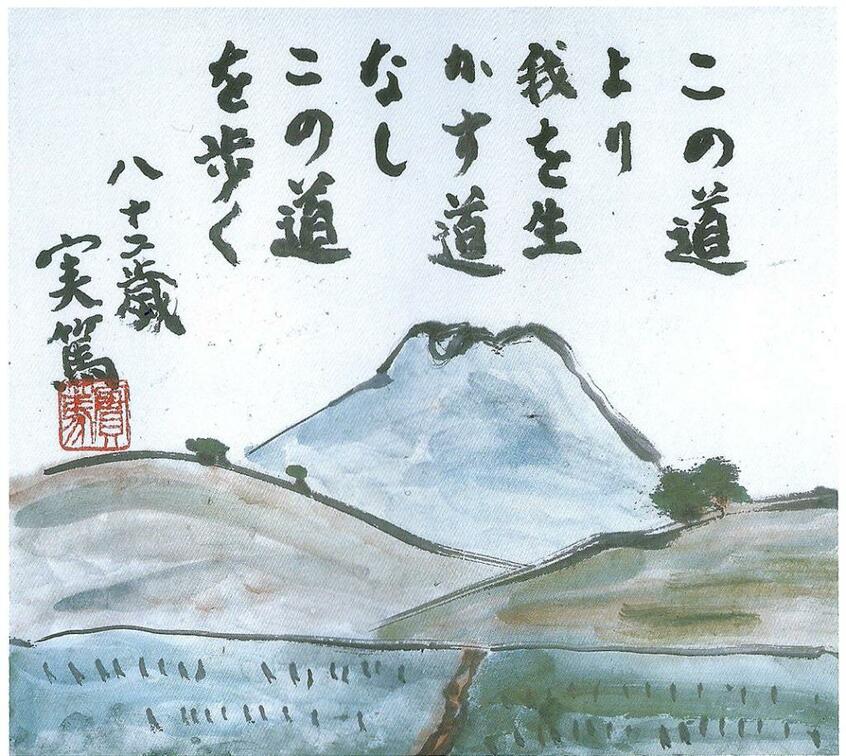 この道
より
我を生
かす道
なし
この道
を歩く
八十二歳
実篤
實篤